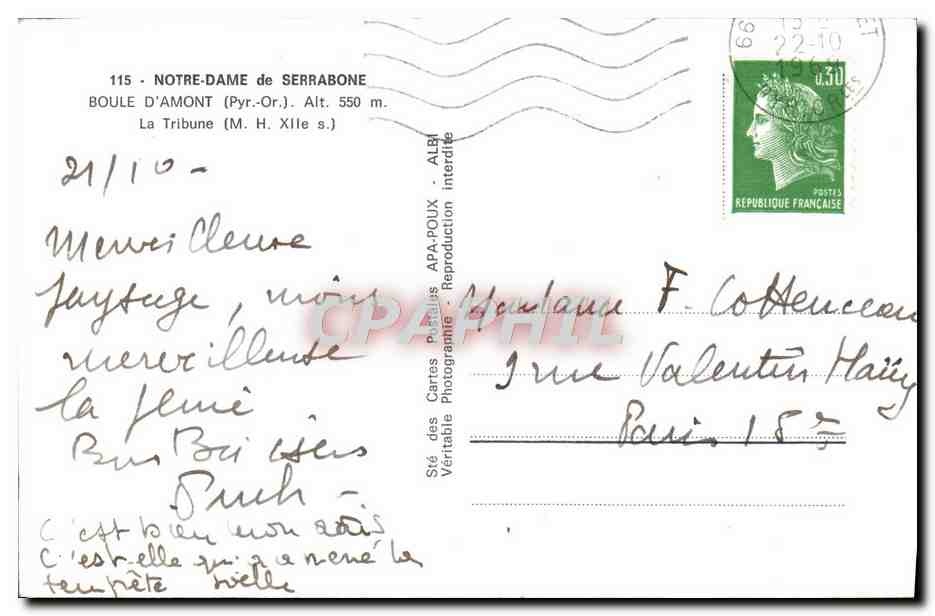 115 - NOTRE-DAME de SERRABONE
BOULE D'AMONT (Pyr.-Or.). Alt. 550 m.
La Tribune (M. H. XIIe s.)
21/10 -
Merveilleuse
paysage, moins
merveilleuse
la
Bons Baisers
C'est bien mon avis
C'est elle qui a mené la
tempête
Sté des Cartes Postales APA-POUX - ALBI
Véritable Photographie - Reproduction interdite
66
22-10
1968
0,30
POSTES
REPUBLIQUE FRANÇAISE
Madame F. Cottenceau
9 rue Valentin Haüy
Paris 15e
CPAPHIL